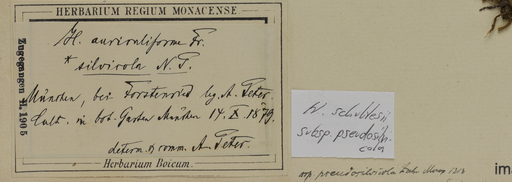 HERBARIUM REGIUM MONACENSE
Zugegangen II. 1905
H. auriculiforme Fr.
* silvicola N. P.
München, bei Forstenried leg. A. Peter
Cult. in bot. Garten München 14. X. 1879.
determ. & comm. A. Peter.
Herbarium Boicum.
H. schultesii
subsp. pseudosilvi
cola
ssp. pseudosilvicola